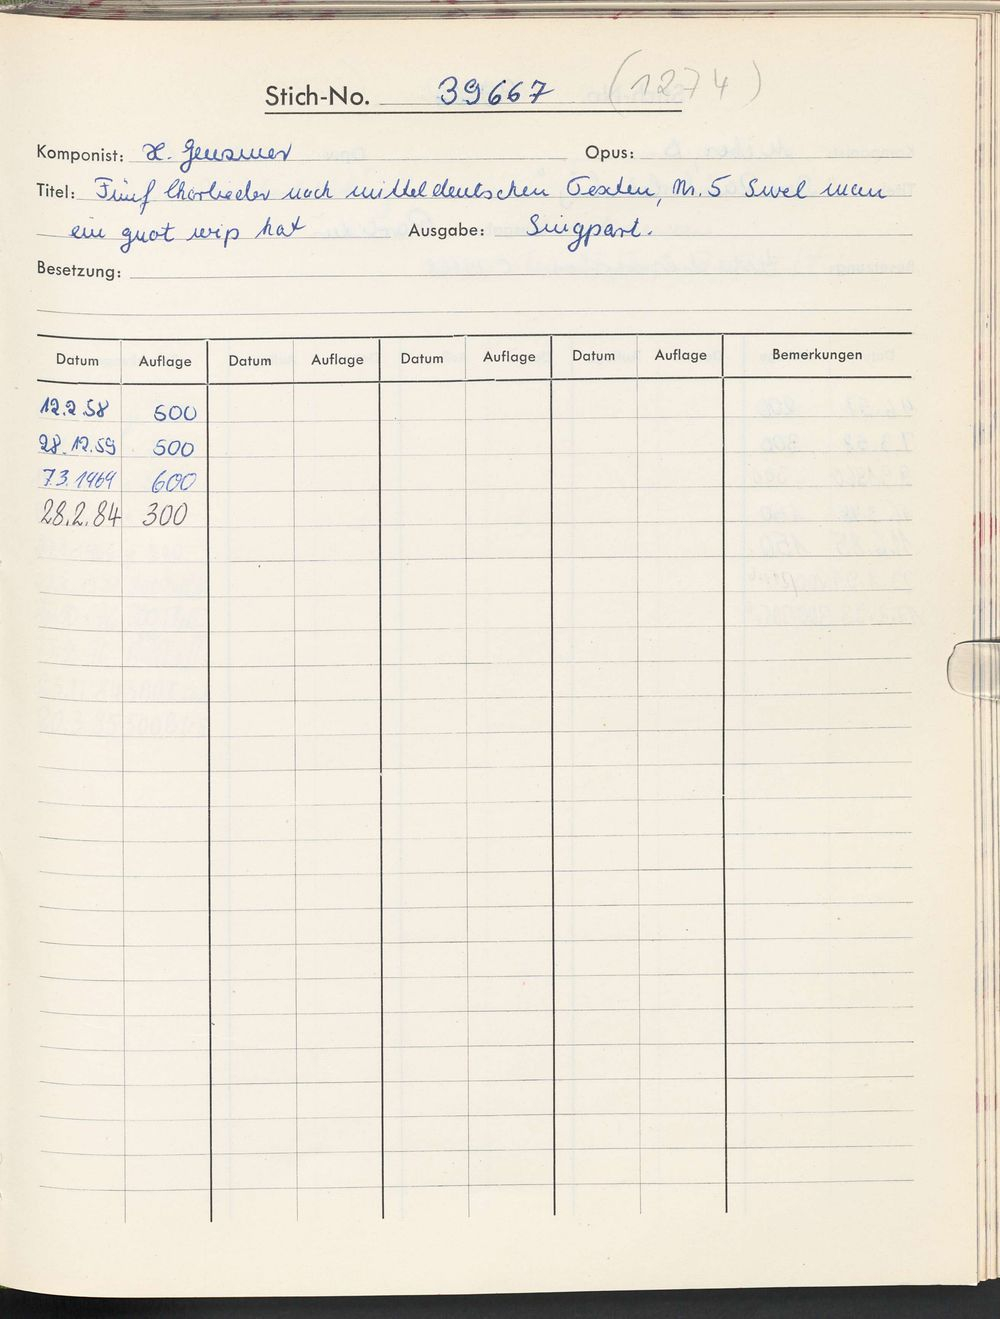 Stich-No. 39667 (1274)
Komponist: H. Genzmer Opus:
Titel: Fünf Chorlieder nach mitteldeutschen Texten, Nr. 5 Swel man
ein guot wip hat Ausgabe: Singpart.
Besetzung:
Datum Auflage Datum Auflage Datum Auflage Datum Auflage Bemerkungen
12.2.58 500
28.12.59 500
7.3.1969 600
28.2.84 300